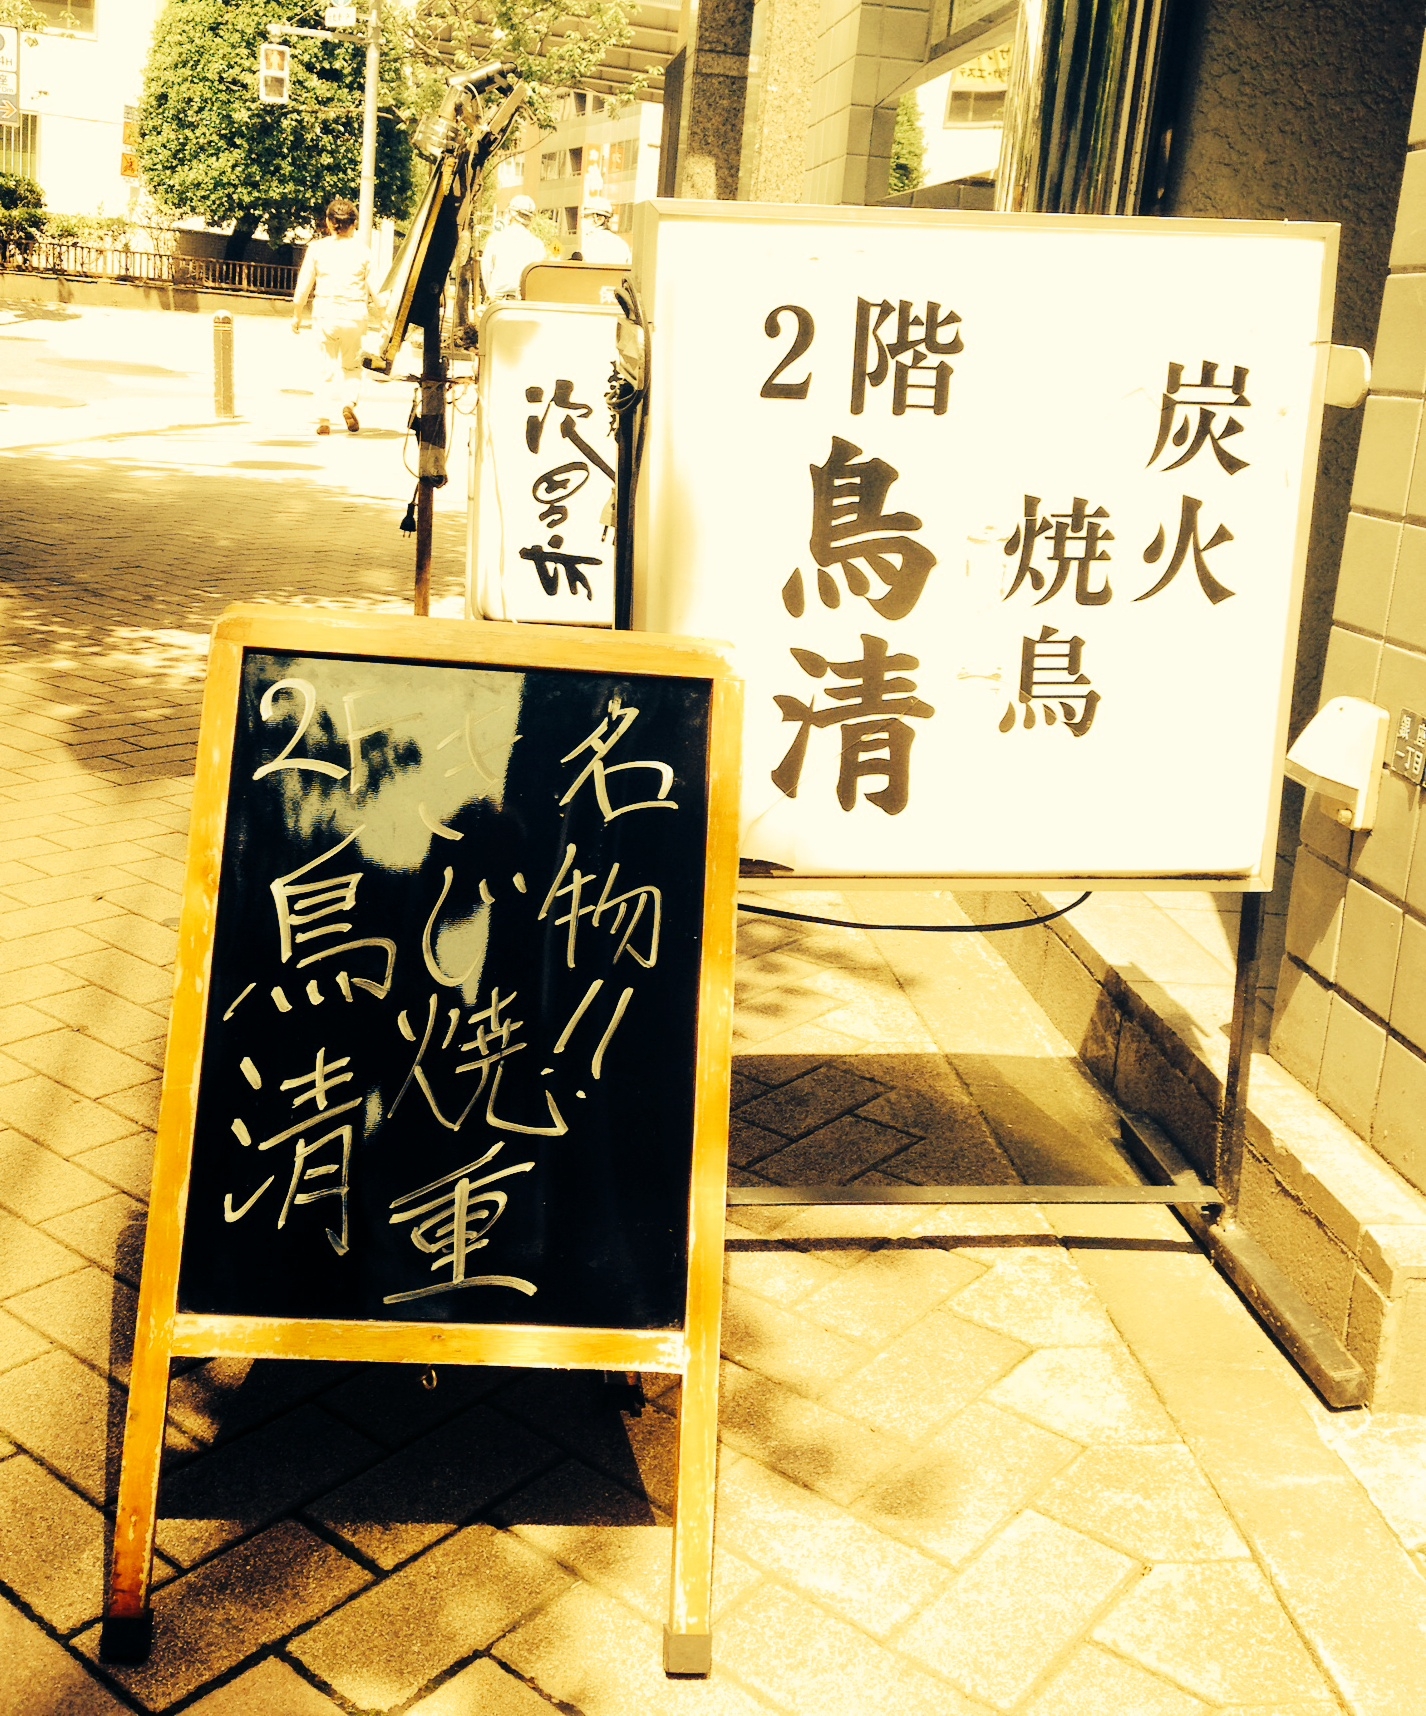 炭火
焼鳥
2階
鳥清
名物!!
きじ焼重
2F
鳥清
銀座
一丁目